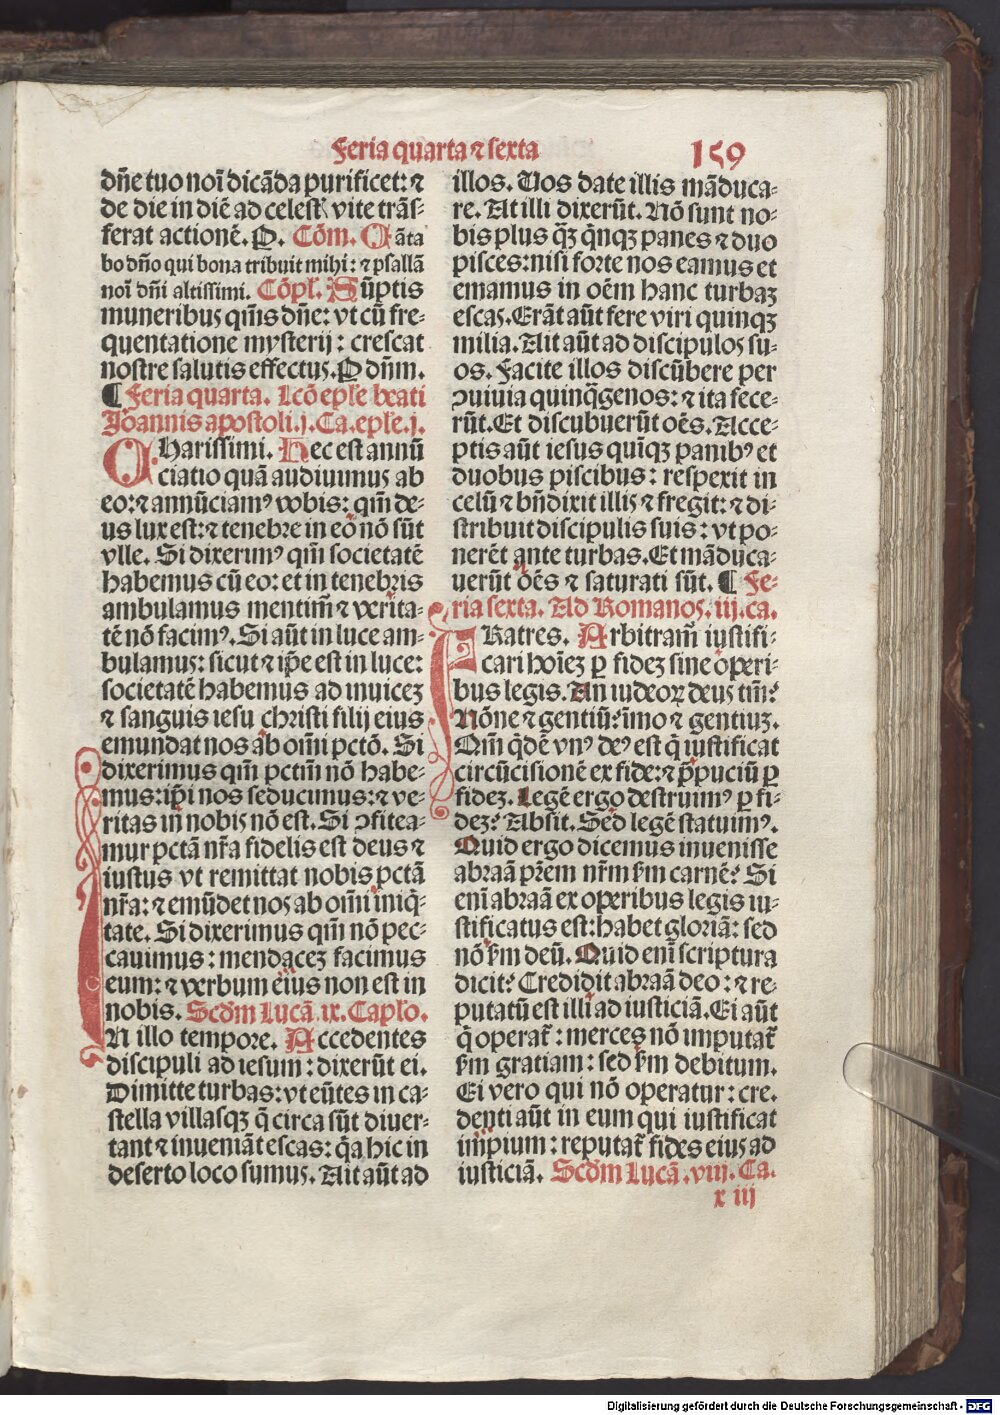 Feria quarta ⁊ sexta
159
dn̄e tuo noī dicāda purificet: ⁊
de die in diē ad celestꝭ vite trās-
ferat actionē. P. Cōm. Cāta
bo dn̄o qui bona tribuit mihi: ⁊ psallā
noī dn̄i altissimi. Cōpl. Sūptis
muneribus qm̄is dn̄e: vt cū fre-
quentatione mysterij: crescat
nostre salutis effectus. P dn̄m.
¶ Feria quarta. Lcō eple beati
Joannis apostoli.j. Ca. eple.j.
CHarissimi. Hec est annū
ciatio quā audiuimus ab
eo: ⁊ annūciamꝰ vobis: qm̄ de-
us lux est: ⁊ tenebre in eo nō sūt
vlle. Si dixerimꝰ qm̄ societatē
habemus cū eo: et in tenebris
ambulamus mentim̄ ⁊ verita-
tē nō facimꝰ. Si aūt in luce am-
bulamus: sicut ⁊ ip̄e est in luce:
societatē habemus ad inuicez
⁊ sanguis iesu christi filij eius
emundat nos ab om̄i pctō. Si
dixerimus qm̄ pctm̄ nō habe-
mus: ip̄i nos seducimus: ⁊ ve-
ritas in nobis nō est. Si ꝯfitea-
mur pctā nr̄a fidelis est deus ⁊
iustus vt remittat nobis pctā
nr̄a: ⁊ emūdet nos ab om̄i iniq̄-
tate. Si dixerimus qm̄ nō pec-
cauimus: mendacez facimus
eum: ⁊ verbum eius non est in
nobis. Scd̄m Lucā .ix. Caplo.
IN illo tempore. Accedentes
discipuli ad iesum: dixerūt ei.
Dimitte turbas: vt eūtes in ca-
stella villasqꝫ q̄ circa sūt diuer-
tant ⁊ inueniāt escas: q̄a hic in
deserto loco sumus. Ait aūt ad
illos. Vos date illis māduca-
re. At illi dixerūt. Nō sunt no-
bis plus q̄ꝫ q̄nqꝫ panes ⁊ duo
pisces: nisi forte nos eamus et
emamus in oēm hanc turbaꝫ
escas. Erāt aūt fere viri quinqꝫ
milia. Ait aūt ad discipulos su-
os. Facite illos discūbere per
ꝯuiuia quinq̄genos: ⁊ ita fece-
rūt. Et discubuerūt oēs. Acce-
ptis aūt iesus quīqꝫ panibꝰ et
duobus piscibus: respexit in
celū ⁊ bn̄dixit illis ⁊ fregit: ⁊ di-
stribuit discipulis suis: vt po-
nerēt ante turbas. Et māduca-
uerūt oēs ⁊ saturati sūt. ¶ Fe-
ria sexta. Ad Romanos. iij. ca.
FRatres. Arbitram̄ iustifi-
cari hoīez ꝑ fidez sine operi-
bus legis. An iudeoꝝ deus tm̄?
Nōne ⁊ gentiū? imo ⁊ gentiuz.
Qm̄ q̄dē vnꝰ deꝰ est q̄ iustificat
circūcisionē ex fide: ⁊ p̄puciū ꝑ
fidez. Legē ergo destruimꝰ ꝑ fi-
dez? Absit. Sed legē statuimꝰ.
Quid ergo dicemus inuenisse
abraā p̄rem nr̄m ẜm carnē? Si
enī abraā ex operibus legis iu-
stificatus est: habet gloriā: sed
nō ẜm deū. Quid enī scriptura
dicit? Credidit abraā deo: ⁊ re-
putatū est illi ad iusticiā. Ei aūt
q̄ operat̄: merces nō imputat̄
ẜm gratiam: sed ẜm debitum.
Ei vero qui nō operatur: cre.
denti aūt in eum qui iustificat
impium: reputat̄ fides eius ad
iusticiā. Scd̄m Lucā .viij. Ca.
x iij
Digitalisierung gefördert durch die Deutsche Forschungsgemeinschaft - DFG